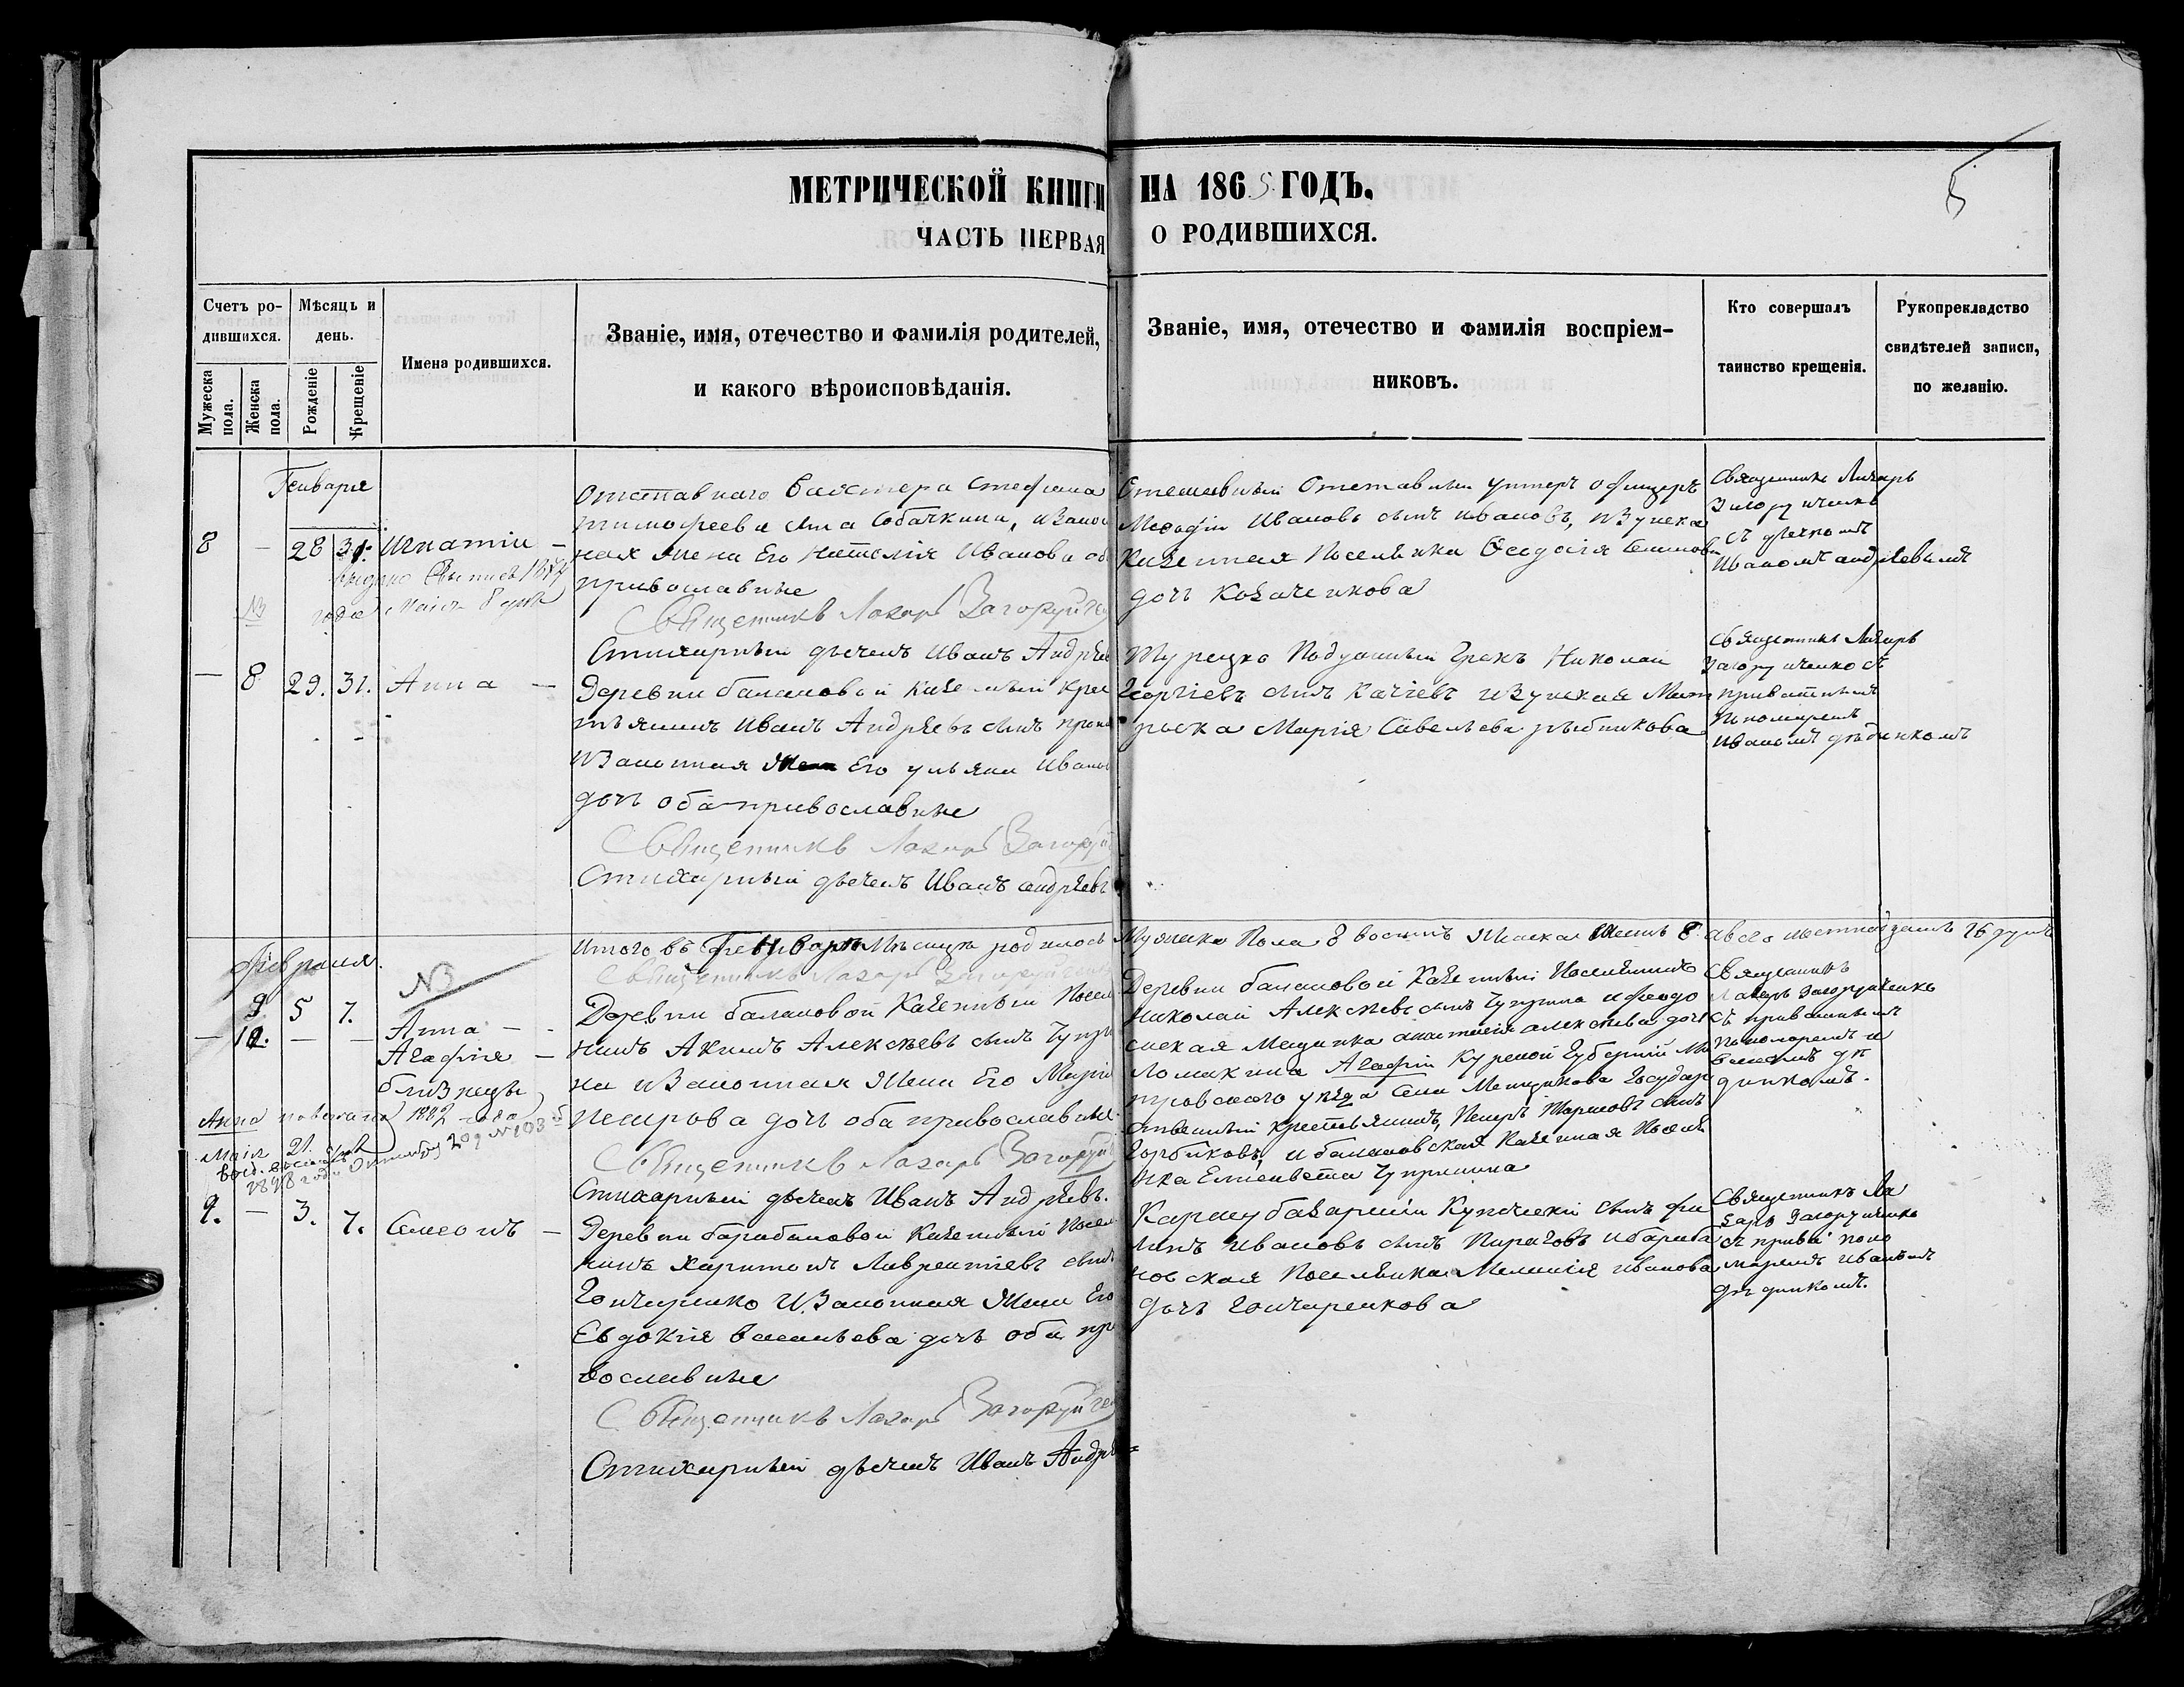 МЕТРИЧЕСКОЙ КНИГИ НА 1865 ГОДЪ.
ЧАСТЬ ПЕРВАЯ О РОДИВШИХСЯ.
5
Счетъ родившихся.
Мужеска пола.
Женска пола.
Мѣсяцъ и день.
Рожденіе
Крещеніе
Имена родившихся.
Званіе, имя, отечество и фамилія родителей,
и какого вѣроисповѣданія.
Званіе, имя, отечество и фамилія воспріем-
никовъ.
Кто совершалъ
таинство крещенія.
Рукопрекладство
свидѣтелей записи,
по желанію.
Генваря
8 — 28 31. Игнатій —
года Маія 8 дня
Отставнаго Вахтера Стефана
тимофеева сына Собачкина, изакон
ная жена Его наталія Иванова об
православные
Священникъ Лазарь Загоруйчен
Стихарный дьячекъ Иванъ Андрѣев
Отставный унтеръ офицеръ
Мефодій Ивановъ сынъ ивановъ,
Казенная Поселянка Феодосія Семинова
дочь Козаченкова
Священникъ Лазарь
Загоруйченко
съ дьячкомъ
Иваномъ андрѣевымъ
— 8 29. 31. Анна —
Деревни балановой казенный крес
тьянинъ Иванъ Андрѣевъ сынъ
изаконная Жена Его ульяна Иванов
дочь оба православные
Священникъ Лазарь Загоруй
Стихарный дьячекъ Иванъ андрѣевъ
Турецко Подданный Грекъ Николай
Георгіевъ сынъ
Марія Савельева рыбникова
Священникъ Лазарь
Загоруйченко съ
приватнымъ
Пономаремъ
Иваномъ дѣдинкомъ
Итого въ Генваре Мѣсяцѣ родилось Мужска Пола 8 восемь Женска восемь 8 авсего шестнадцать 16 душъ
Февраля.
NB
Священникъ Лазарь Загоруйченко
9 5 7. Анна —
— 10. — — Агафія —
близнецы
Анна 1882 года
Маія 21. дня
1898 года Октября 20 д №103
Деревни балановой Казенный Посел
нинъ Акимъ Алексѣевъ сынъ Чупри
на изаконная Жена Его Марія
петрова дочь оба православные.
Священникъ Лазарь Загоруй
Стихарный дьячекъ Иванъ Андрѣевъ.
Деревни балановой Казенный Поселянинъ
Николай Алексѣевъ сынъ Чуприна ифеодо
сиская Мещанка анастасія алексѣева дочь
Ломакина Агафіи Курской Губерніи
тровского уѣзда Села Меньщикова Государ
ственный крестьянинъ, Петръ сынъ
Горбиковъ, ибалановская Казенная Посел
нка Елисавета Чуприна
Священникъ
Лазарь Загоруйченко
съ приватнымъ
Пономаремъ и
ваномъ дѣ
динкомъ.
9. — 3. 7. Симеонъ —
Деревни барабановой Казенный Посел
нинъ Харитонъ Лаврентіевъ сынъ
Гончаренко изаконная Жена Его
Евдокія васильева дочь оба пра
вославные
Священникъ Лазарь Загоруйчен
Стихарный дьячекъ Иванъ Андрѣ=
Карасубазарскій Купеческій сынъ фи
липъ Ивановъ сынъ Пирачовъ ибараба
новская Поселянка Меланія иванова
дочь Гончаренкова
Священникъ Ла
зарь Загоруйченко
съ приват поно
маремъ Иваномъ
дѣдинкомъ.